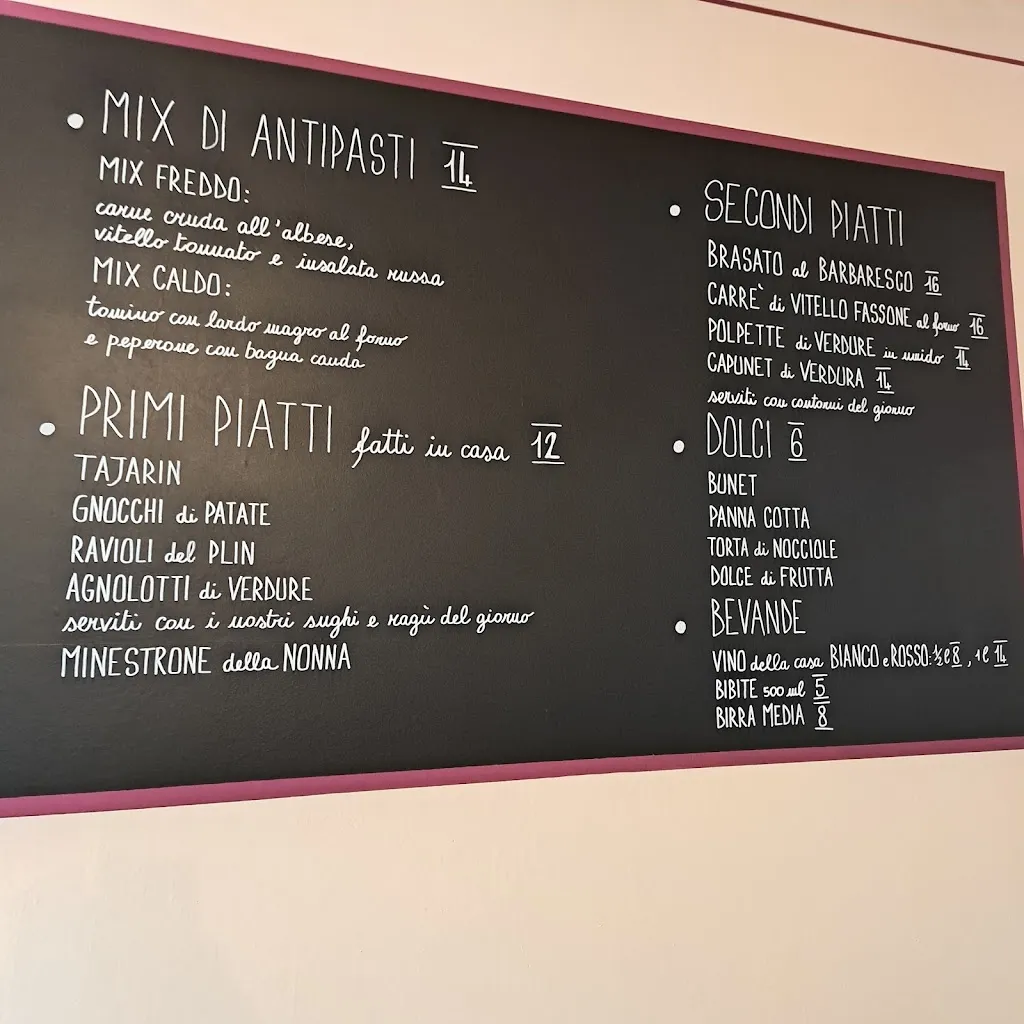 MIX DI ANTIPASTI 14
MIX FREDDO:
carne cruda all'albese,
vitello tonnato e insalata russa
MIX CALDO:
tomino con lardo magro al forno
e peperone con bagna cauda
PRIMI PIATTI fatti in casa 12
TAJARIN
GNOCCHI di PATATE
RAVIOLI del PLIN
AGNOLOTTI di VERDURE
serviti con i nostri sughi e ragù del giorno
MINESTRONE della NONNA
SECONDI PIATTI
BRASATO al BARBARESCO 16
CARRE` di VITELLO FASSONE al forno 16
POLPETTE di VERDURE in umido 14
CAPUNET di VERDURA 14
serviti con contorni del giorno
DOLCI 6
BUNET
PANNA COTTA
TORTA di NOCCIOLE
DOLCE di FRUTTA
BEVANDE
VINO della casa BIANCO e ROSSO: ½ l 8, 1 l 14
BIBITE 500 ml 5
BIRRA MEDIA 8